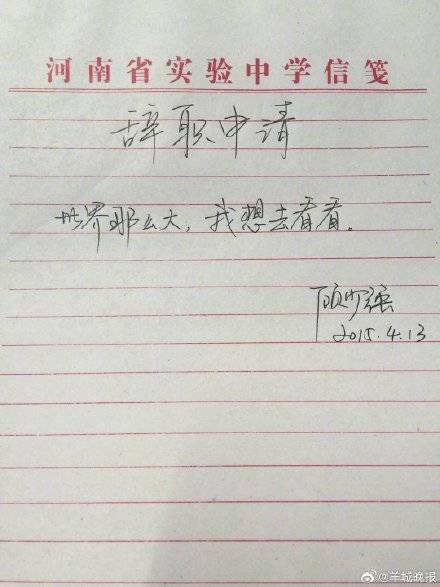 河南省实验中学信笺
辞职申请
世界那么大，我想去看看。
顾少强
2015.4.13
@羊城晚报